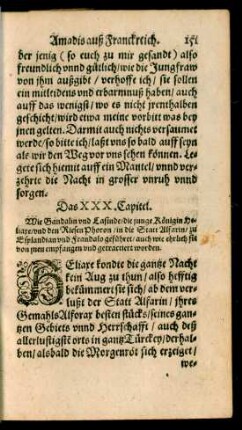 Amadis auß Franckreich. 151
der jenig (so euch zu mir gesandt) also
freundlich vnnd gütlich/wie die Jungfraw
von jhm außgibt/ verhoffe ich/ sie sollen
ein mitleidens vnd erbarmnuß haben/ auch
auff das wenigst/ wo es nicht jrenthalben
geschicht/wird etwa meine vorbitt was bey
jnen gelten. Darmit auch nichts versaumet
werde/so bitte ich/laßt vns so bald auff seyn
als wir den Weg vor vns sehen können. Le
gete sich hiemit auff ein Mantel/ vnnd ver
zehrte die Nacht in grosser vnruh vnnd
sorgen.
Das XXX. Capitel.
Wie Gandalin vnd Lasinde/die junge Königin He
liaxe/vnd den Riesen Phoron / in die Statt Alfarin/ zu
Esplandian vnd Frandalo geführet/ auch wie ehrlich sie
von jnen empfangen vnd getractiert worden.
HEliaxe kondte die gantze Nacht
kein Aug zu thun/ also hefftig
bekümmert sie sich/ ab dem ver
lußt der Statt Alfarin/ jhres
Gemahls Alforax besten stücks/seines gan
tzen Gebiets vnnd Herrschafft / auch deß
allerlustigst orts in gantz Türckey/derhal
ben/ alsbald die Morgenröt sich erzeiget/
we-